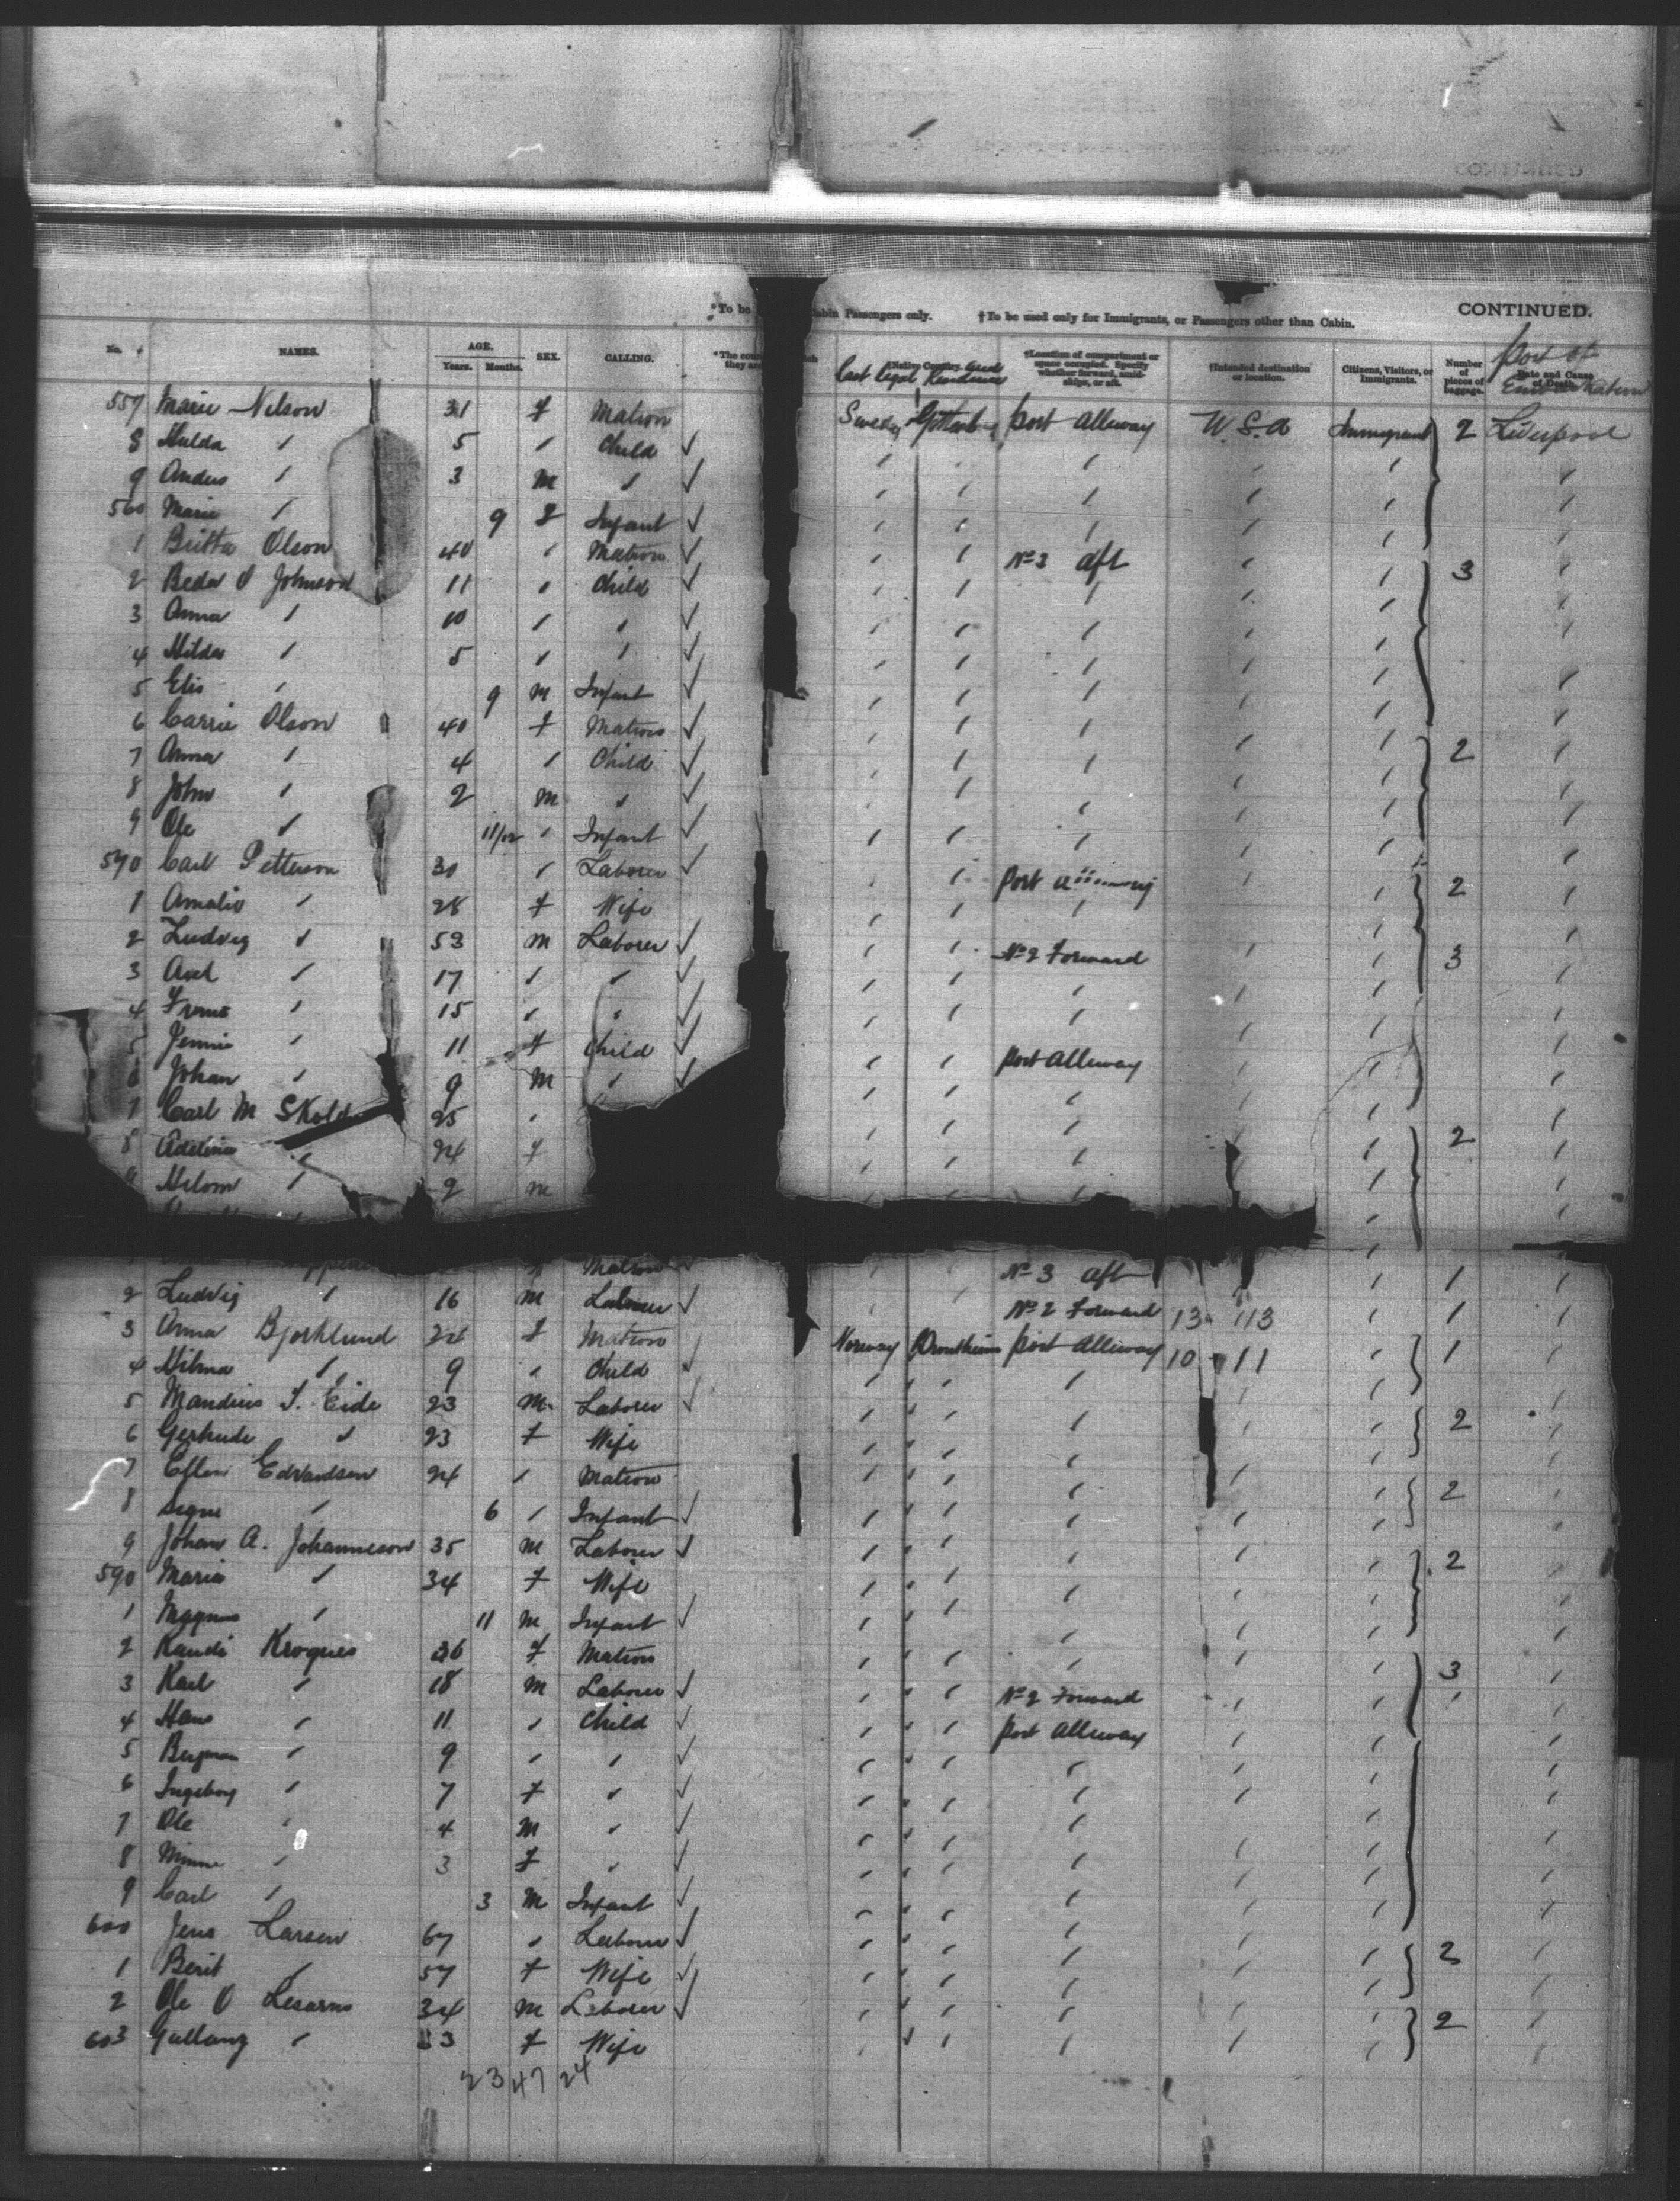 CONTINUED.
*To be Cabin Passengers only. †To be used only for Immigrants, or Passengers other than Cabin.
No. NAMES. AGE. Years. Months. SEX. CALLING. *The coun they are Last legal Residence Native Country and †Location of compartment or space occupied. Specify whether forward, amidships, or aft. †Intended destination or location. Citizens, Visitors, or Immigrants. Number of pieces of baggage. Port of Embarkation Date and Cause of Death.
557 Marie Nelson 31 f Matron Sweden Gottenburg port alleway U.S.A Immigrant 2 Liverpool
8 Hulda " 5 " Child ✓
9 Anders " 3 M " ✓
560 Marie " 9 f Infant ✓
1 Britta Olson 40 " Matron ✓ No 3 aft 3
2 Beda O Johnson 11 " Child ✓
3 Anna " 10 " " ✓
4 Hilda " 5 " " ✓
5 Elis " 9 M Infant ✓
6 Carrie Olson 40 f Matron ✓ 2
7 Anna " 4 " Child ✓
8 John " 2 M " ✓
9 Ole " 11/12 " Infant ✓
570 Carl Petterson 30 " Laborer ✓ port 2
1 Amalie " 28 f Wife
2 Ludvig " 53 M Laborer ✓ No 2 Forward 3
3 Axel " 17 " " ✓
4 " 15 " " ✓
5 Jennie " 11 f Child ✓ port alleway
6 Johan " 9 M " ✓
7 Carl M Skold 25 "
8 Adelina " 24 f 2
9 " 2 M
Matron ✓ No 3 aft 1
2 Ludvig " 16 M Laborer ✓ No 2 Forward 13 113 1
3 Anna Bjorklund 24 f Matron ✓ Norway Drontheim port alleway 10 - 11 1
4 Hilma " 9 " Child ✓
5 Mandius J. Eide 23 M Laborer ✓ 2
6 Gertrude " 23 f Wife
7 Edvardsen 24 " Matron 2
8 Signe " 6 " Infant ✓
9 Johan A. Johanneson 35 M Laborer ✓ 2
590 Maria " 34 f Wife
1 Magnus " 11 M Infant ✓
2 Kroques 36 f Matron 3
3 Karl " 18 M Laborer ✓ No 2 Forward
4 Hans " 11 " Child ✓ port alleway
5 " 9 " " ✓
6 Ingeborg " 7 f " ✓
7 Ole " 4 M " ✓
8 Minnie " 3 f " ✓
9 Carl " 3 M Infant ✓
600 Jens Larsen 67 " Laborer ✓ 2
1 Berit " 57 f Wife ✓
2 Ole O 34 M Laborer ✓ 2
603 " 33 f Wife
23 47 24